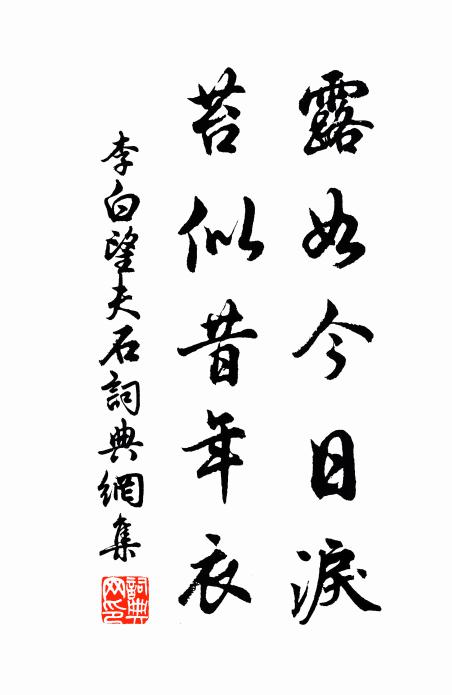 露如今日淚
苔似昔年衣
李白望夫石詞典網集
詞典網印